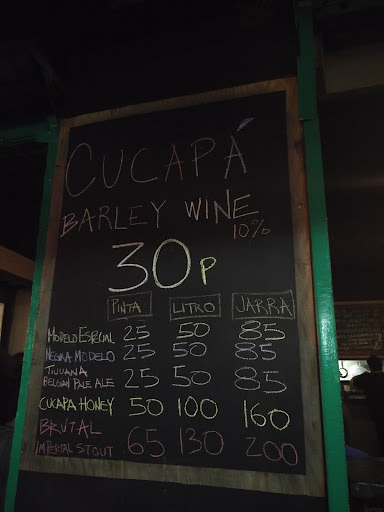 CUCAPÁ
BARLEY WINE
10%
30P
PINTA LITRO JARRA
MODELO ESPECIAL 25 50 85
NEGRA MODELO 25 50 85
TIJUANA
BELGIAN PALE ALE 25 50 85
CUCAPA HONEY 50 100 160
BRUTAL
IMPERIAL STOUT 65 130 200